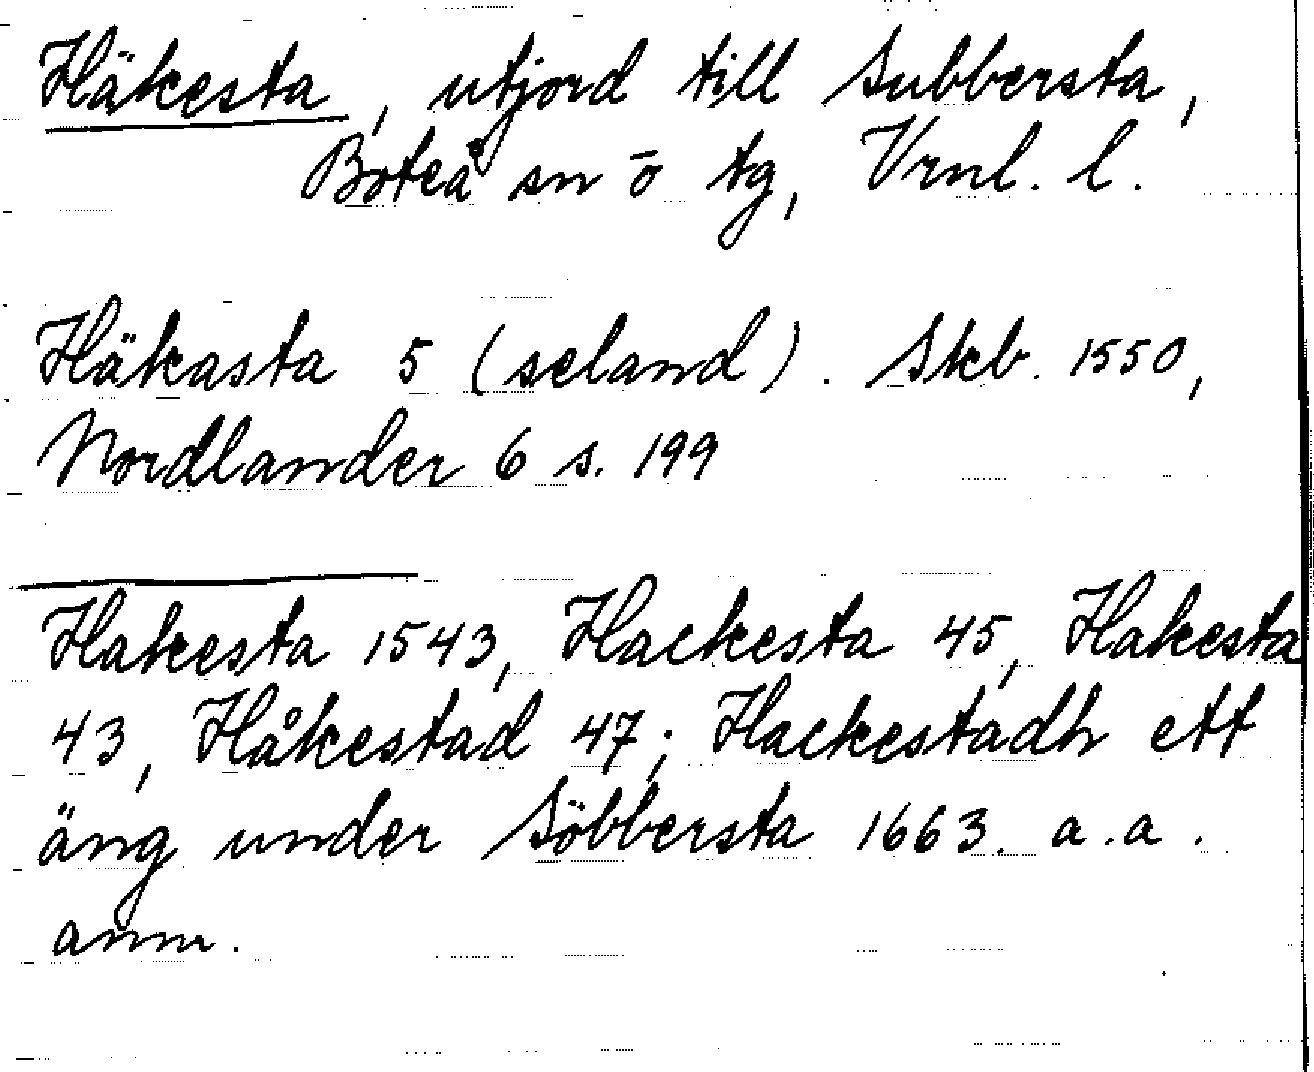 Häkesta, utjord till Subbersta,
Boteå sn o tg, Vrnl. l.
Häkasta 5 (seland). Skb. 1550,
Nordlander 6 s. 199
Hakesta 1543, Hackesta 45, Hakesta
43, Håkestad 47; Hackestadh ett
äng under Söbbersta 1663. a.a.
anm.